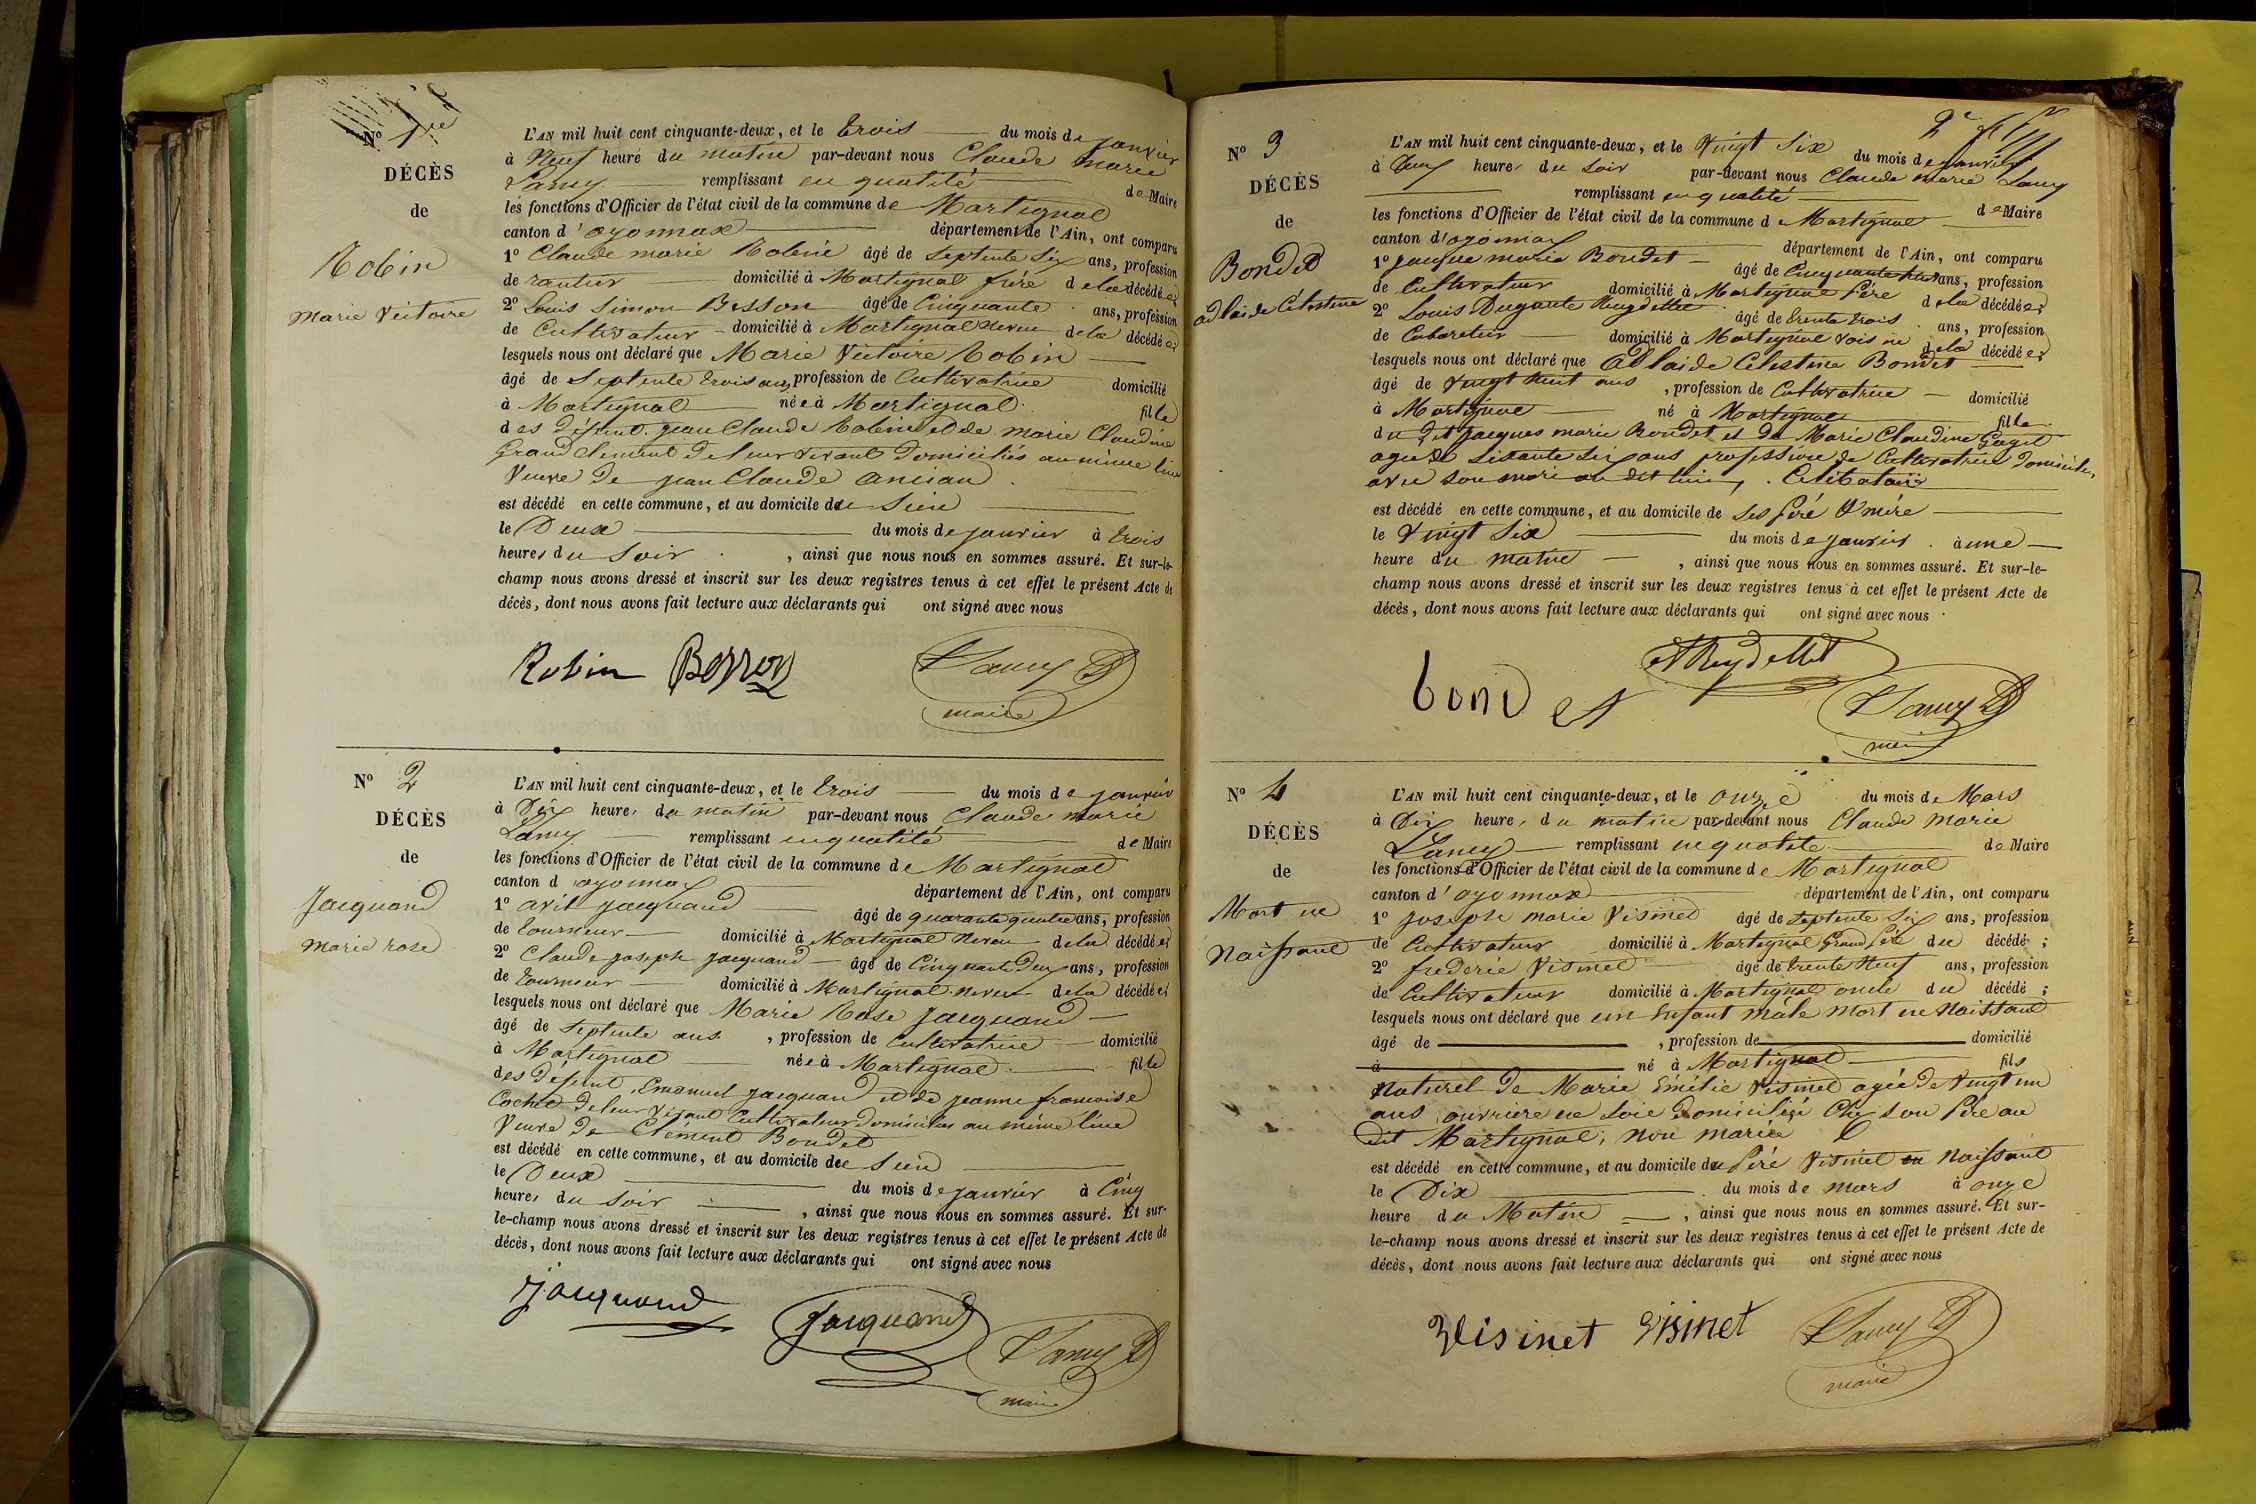 Nº 1er
DÉCÈS
de
Robin
Marie Victoire
L'AN mil huit cent cinquante-deux, et le trois du mois de janvier
à Neuf heure du matin par-devant nous Claude Marie
Lamy remplissant en qualité de Maire
les fonctions d'Officier de l'état civil de la commune de Martignat
canton d'oyonnax département de l'Ain, ont comparu
1º Claude marie Robin âgé de septente Six ans, profession
de rantier domicilié à Martignat frère de la décédée;
2º Louis Simon Besson âgé de Cinquante ans, profession
de Cultivateur domicilié à Martignat Neveu de la décédée;
lesquels nous ont déclaré que Marie Victoire Robin
âgé de Septente trois ans, profession de Cultivatrice domicilié
à Martignat née à Martignat fille
des défunt jean Claude Robin et de marie Claudine
Grand Clement de leur vivant Domiciliés au même lieu
Veuve de jean Claude
est décédé en cette commune, et au domicile de Sien
le Deux du mois de janvier à trois
heures du Soir, ainsi que nous nous en sommes assuré. Et sur-le-
champ nous avons dressé et inscrit sur les deux registres tenus à cet effet le présent Acte de
décès, dont nous avons fait lecture aux déclarants qui ont signé avec nous
Robin Besson Lamy
maire
Nº 2
DÉCÈS
de
Jacquand
Marie rose
L'AN mil huit cent cinquante-deux, et le trois du mois de janvier
à Dix heures du matin par-devant nous Claude marie
Lamy remplissant en qualité de Maire
les fonctions d'Officier de l'état civil de la commune de Martignat
canton d'oyonnax département de l'Ain, ont comparu
1º avit jacquand âgé de quarante quatre ans, profession
de tourneur domicilié à Martignat Neveu de la décédée;
2º Claude joseph jacquand âgé de Cinquante Deux ans, profession
de tourneur domicilié à Martignat neveu de la décédée;
lesquels nous ont déclaré que Marie Rose Jacquand
âgé de septente ans, profession de Cultivatrice domicilié
à Martignat née à Martignat fille
des Défunt Emanuel jacquand et de jeanne francoise
Cochet de leur vivant Cultivateur Domiciliés au même lieu
Veuve de Clément Bondet
est décédé en cette commune, et au domicile de Sien
le Deux du mois de janvier à Cinq
heures du Soir, ainsi que nous nous en sommes assuré. Et sur-
le-champ nous avons dressé et inscrit sur les deux registres tenus à cet effet le présent Acte de
décès, dont nous avons fait lecture aux déclarants qui ont signé avec nous
Jacquand Jacquand Lamy
maire
2e
Nº 3
DÉCÈS
de
Bondet
adlaide Célestine
L'AN mil huit cent cinquante-deux, et le Vingt Six du mois de janvier
à Deux heures du Soir par-devant nous Claude Marie Lamy
remplissant en qualité de Maire
les fonctions d'Officier de l'état civil de la commune de Martignat
canton d'oyonnax département de l'Ain, ont comparu
1º jacque marie Bondet âgé de Cinquante huit ans, profession
de Cultivateur domicilié à Martignat Père de la décédée;
2º Louis Reydellet âgé de trente trois ans, profession
de Cabaretier domicilié à Martignat voisin de la décédée;
lesquels nous ont déclaré que Adlaide Célestine Bondet
âgé de Vingt huit ans, profession de Cultivatrice domicilié
à Martignat né à Martignat fille
du dit Jacques marie Bondet et de Marie Claudine Goyet
agée de Sixante Six ans profession de Cultivatrice Domiciliés
avec son mari au dit lieu, Célibataire
est décédé en cette commune, et au domicile de ses Père & mère
le Vingt Six du mois de janvier à une
heure du matin, ainsi que nous nous en sommes assuré. Et sur-le-
champ nous avons dressé et inscrit sur les deux registres tenus à cet effet le présent Acte de
décès, dont nous avons fait lecture aux déclarants qui ont signé avec nous
bondet Reydellet Lamy
maire
Nº 4
DÉCÈS
de
Mort ne
Naissant
L'AN mil huit cent cinquante-deux, et le onze du mois de Mars
à Dix heures du matin par-devant nous Claude Marie
Lamy remplissant en qualité de Maire
les fonctions d'Officier de l'état civil de la commune de Martignat
canton d'oyonnax département de l'Ain, ont comparu
1º joseph marie Visinet âgé de septente Six ans, profession
de Cultivateur domicilié à Martignat Grand Père du décédé;
2º frederic Visinet âgé de trente Neuf ans, profession
de Cultivateur domicilié à Martignat oncle du décédé;
lesquels nous ont déclaré que un Enfant Mâle Mort ne Naissant
âgé de , profession de domicilié
à né à Martignat fils
naturel de Marie Emélie Visinet agée de Vingt un
ans ouvriere en Soie Domiciliée Chez son Père au
dit Martignat, non mariée
est décédé en cette commune, et au domicile du Père Visinet en Naissant
le Dix du mois de mars à onze
heure du Matin, ainsi que nous nous en sommes assuré. Et sur-
le-champ nous avons dressé et inscrit sur les deux registres tenus à cet effet le présent Acte de
décès, dont nous avons fait lecture aux déclarants qui ont signé avec nous
Visinet Visinet Lamy
maire